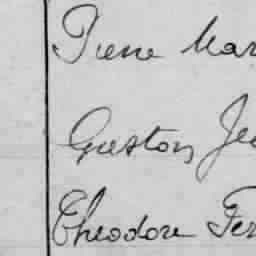 Irene Mar
Gaston Je
Theodore Fer